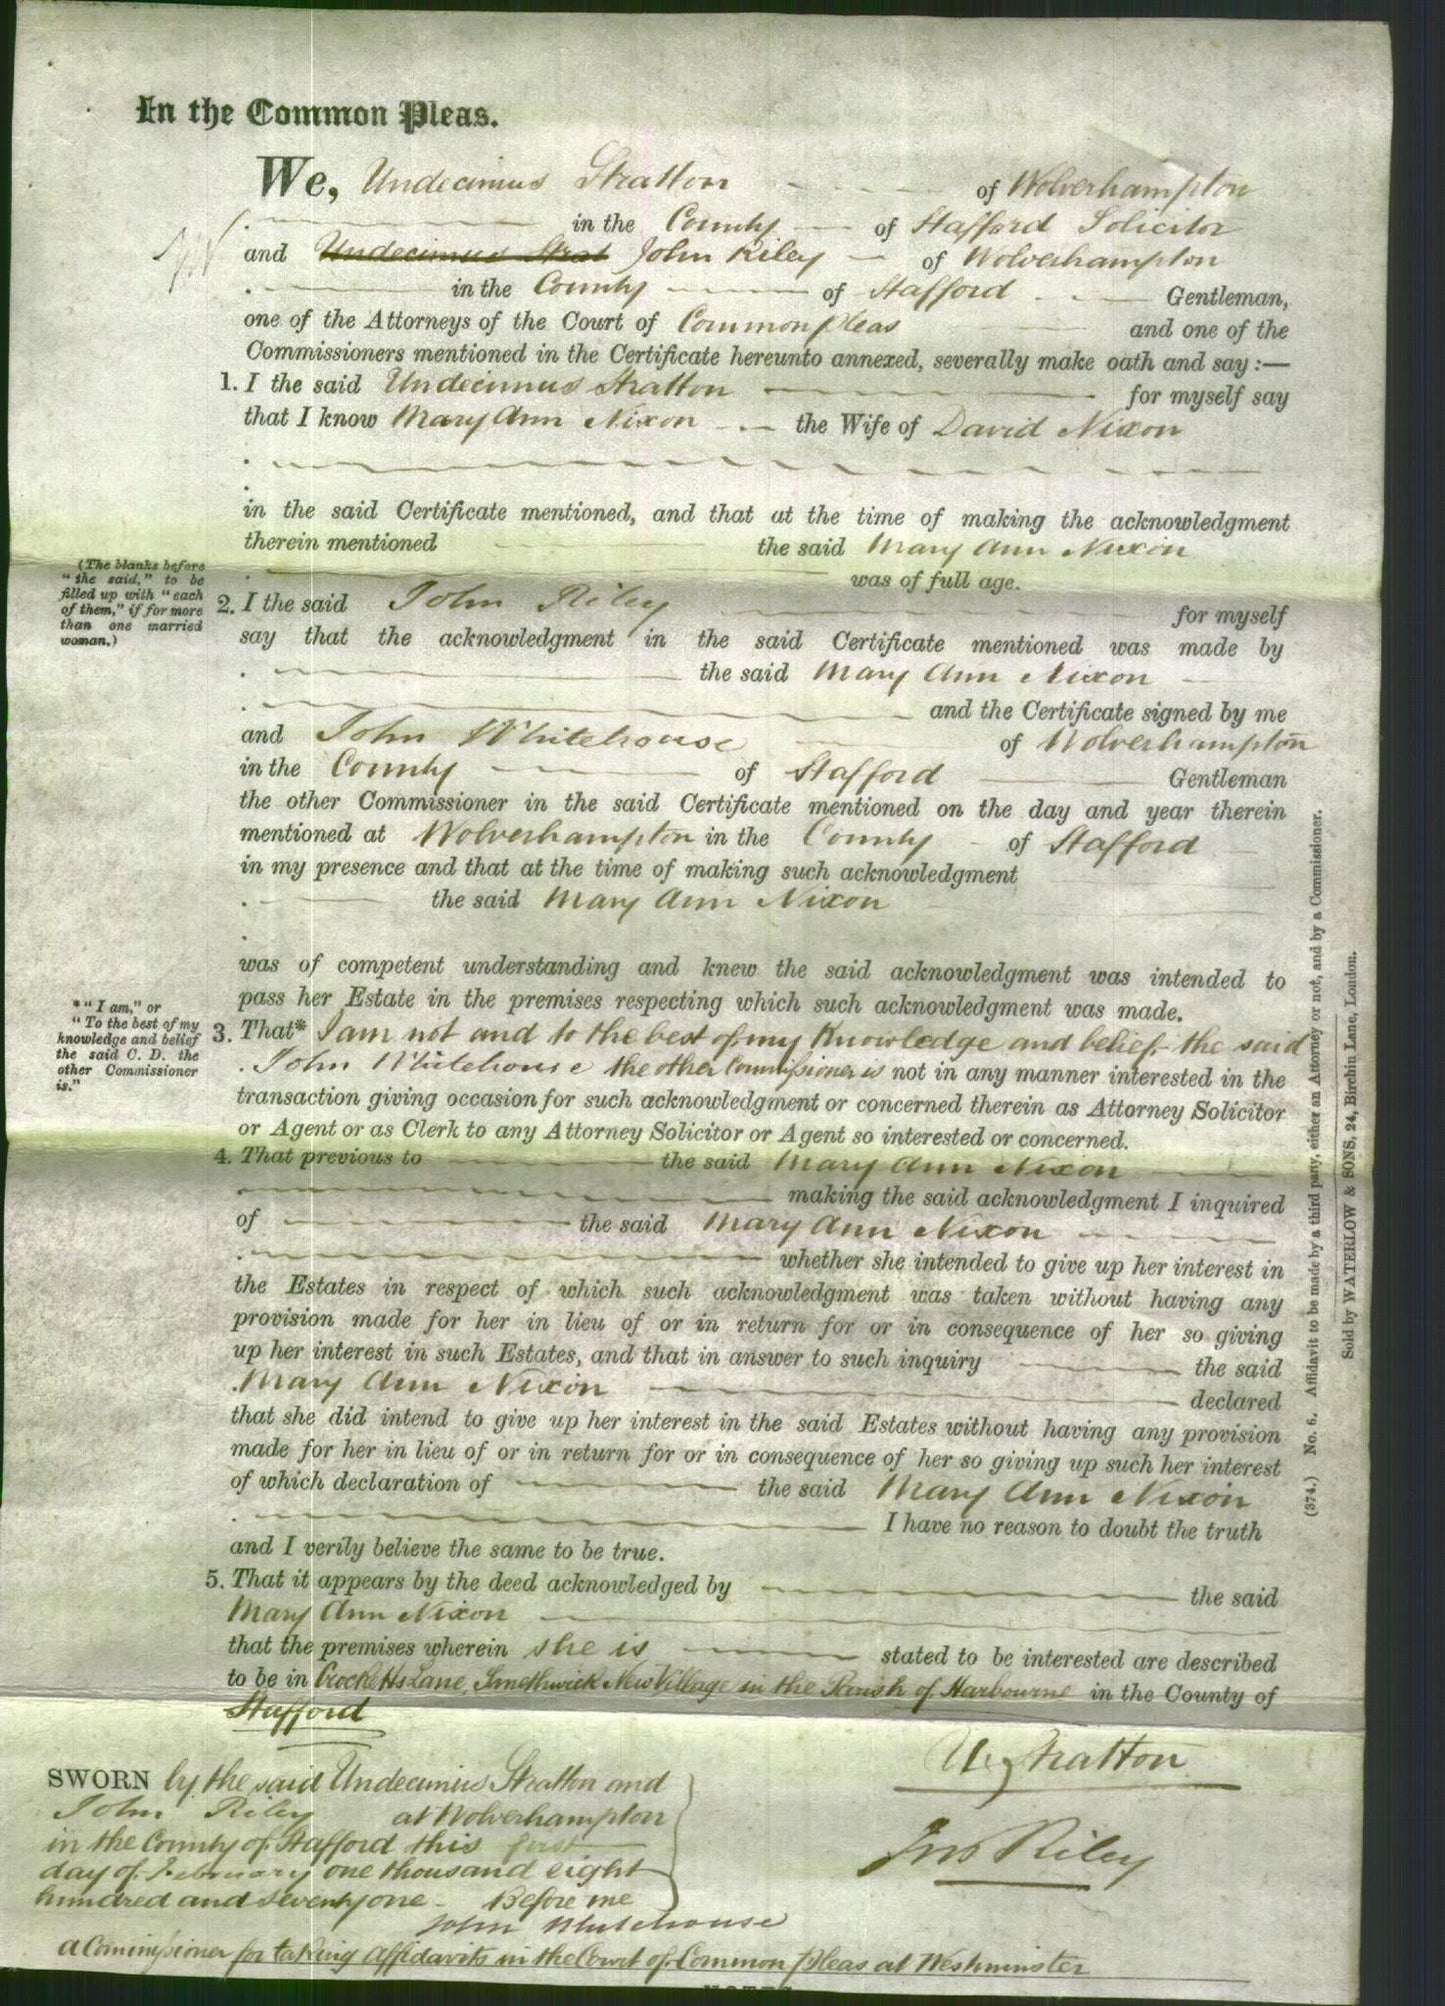 In the Common Pleas.
We, Undecimus Stratton of Wolverhampton
in the County of Stafford Solicitor
and Undecimus Strat John Riley of Wolverhampton
in the County of Stafford Gentleman,
one of the Attorneys of the Court of Common Pleas and one of the
Commissioners mentioned in the Certificate hereunto annexed, severally make oath and say :—
1. I the said Undecimus Stratton for myself say
that I know Mary Ann Nixon the Wife of David Nixon
in the said Certificate mentioned, and that at the time of making the acknowledgment
therein mentioned the said Mary Ann Nixon
was of full age.
(The blanks before
"the said," to be
filled up with "each
of them," if for more
than one married
woman.)
2. I the said John Riley for myself
say that the acknowledgment in the said Certificate mentioned was made by
the said Mary Ann Nixon
and the Certificate signed by me
and John Whitehouse of Wolverhampton
in the County of Stafford Gentleman
the other Commissioner in the said Certificate mentioned on the day and year therein
mentioned at Wolverhampton in the County of Stafford
in my presence and that at the time of making such acknowledgment
the said Mary Ann Nixon
was of competent understanding and knew the said acknowledgment was intended to
pass her Estate in the premises respecting which such acknowledgment was made.
*"I am," or
"To the best of my
knowledge and belief
the said C. D. the
other Commissioner
is."
3. That* I am not and to the best of my Knowledge and belief the said
John Whitehouse the other Commissioner is not in any manner interested in the
transaction giving occasion for such acknowledgment or concerned therein as Attorney Solicitor
or Agent or as Clerk to any Attorney Solicitor or Agent so interested or concerned.
4. That previous to the said Mary Ann Nixon
making the said acknowledgment I inquired
of the said Mary Ann Nixon
whether she intended to give up her interest in
the Estates in respect of which such acknowledgment was taken without having any
provision made for her in lieu of or in return for or in consequence of her so giving
up her interest in such Estates, and that in answer to such inquiry the said
Mary Ann Nixon declared
that she did intend to give up her interest in the said Estates without having any provision
made for her in lieu of or in return for or in consequence of her so giving up such her interest
of which declaration of the said Mary Ann Nixon
I have no reason to doubt the truth
and I verily believe the same to be true.
5. That it appears by the deed acknowledged by the said
Mary Ann Nixon
that the premises wherein she is stated to be interested are described
to be in Crocketts Lane, Smethwick New Village in the Parish of Harbourne in the County of
Stafford
SWORN by the said Undecimus Stratton and
John Riley at Wolverhampton
in the County of Stafford this first
day of February one thousand eight
hundred and seventy one Before me
John Whitehouse
a Commissioner for taking Affidavits in the Court of Common Pleas at Westminster
U. Stratton
Jno Riley
(374.) No. 6. Affidavit to be made by a third party, either an Attorney or not, and by a Commissioner.
Sold by WATERLOW & SONS, 24, Birchin Lane, London.